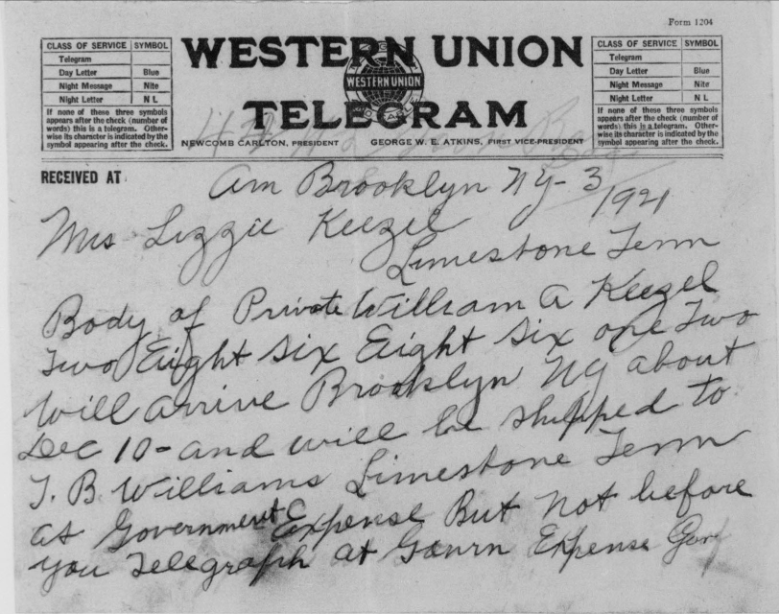 Form 1204
CLASS OF SERVICE SYMBOL
Telegram
Day Letter Blue
Night Message Nite
Night Letter N L
If none of these three symbols
appears after the check (number of
words) this is a telegram. Other-
wise its character is indicated by the
symbol appearing after the check.
WESTERN UNION
WESTERN UNION
TELEGRAM
NEWCOMB CARLTON, PRESIDENT GEORGE W. E. ATKINS, FIRST VICE-PRESIDENT
CLASS OF SERVICE SYMBOL
Telegram
Day Letter Blue
Night Message Nite
Night Letter N L
If none of these three symbols
appears after the check (number of
words) this is a telegram. Other-
wise its character is indicated by the
symbol appearing after the check.
RECEIVED AT
am Brooklyn NY - 3
1921
Mrs Lizzie Keezel
Limestone Tenn
Body of Private William A Keezel
Two Eight six Eight six one Two
will arrive Brooklyn NY about
Dec 10 - and will be shipped to
J. B. Williams Limestone Tenn
at Government Expense But not before
you Telegraph at Expense